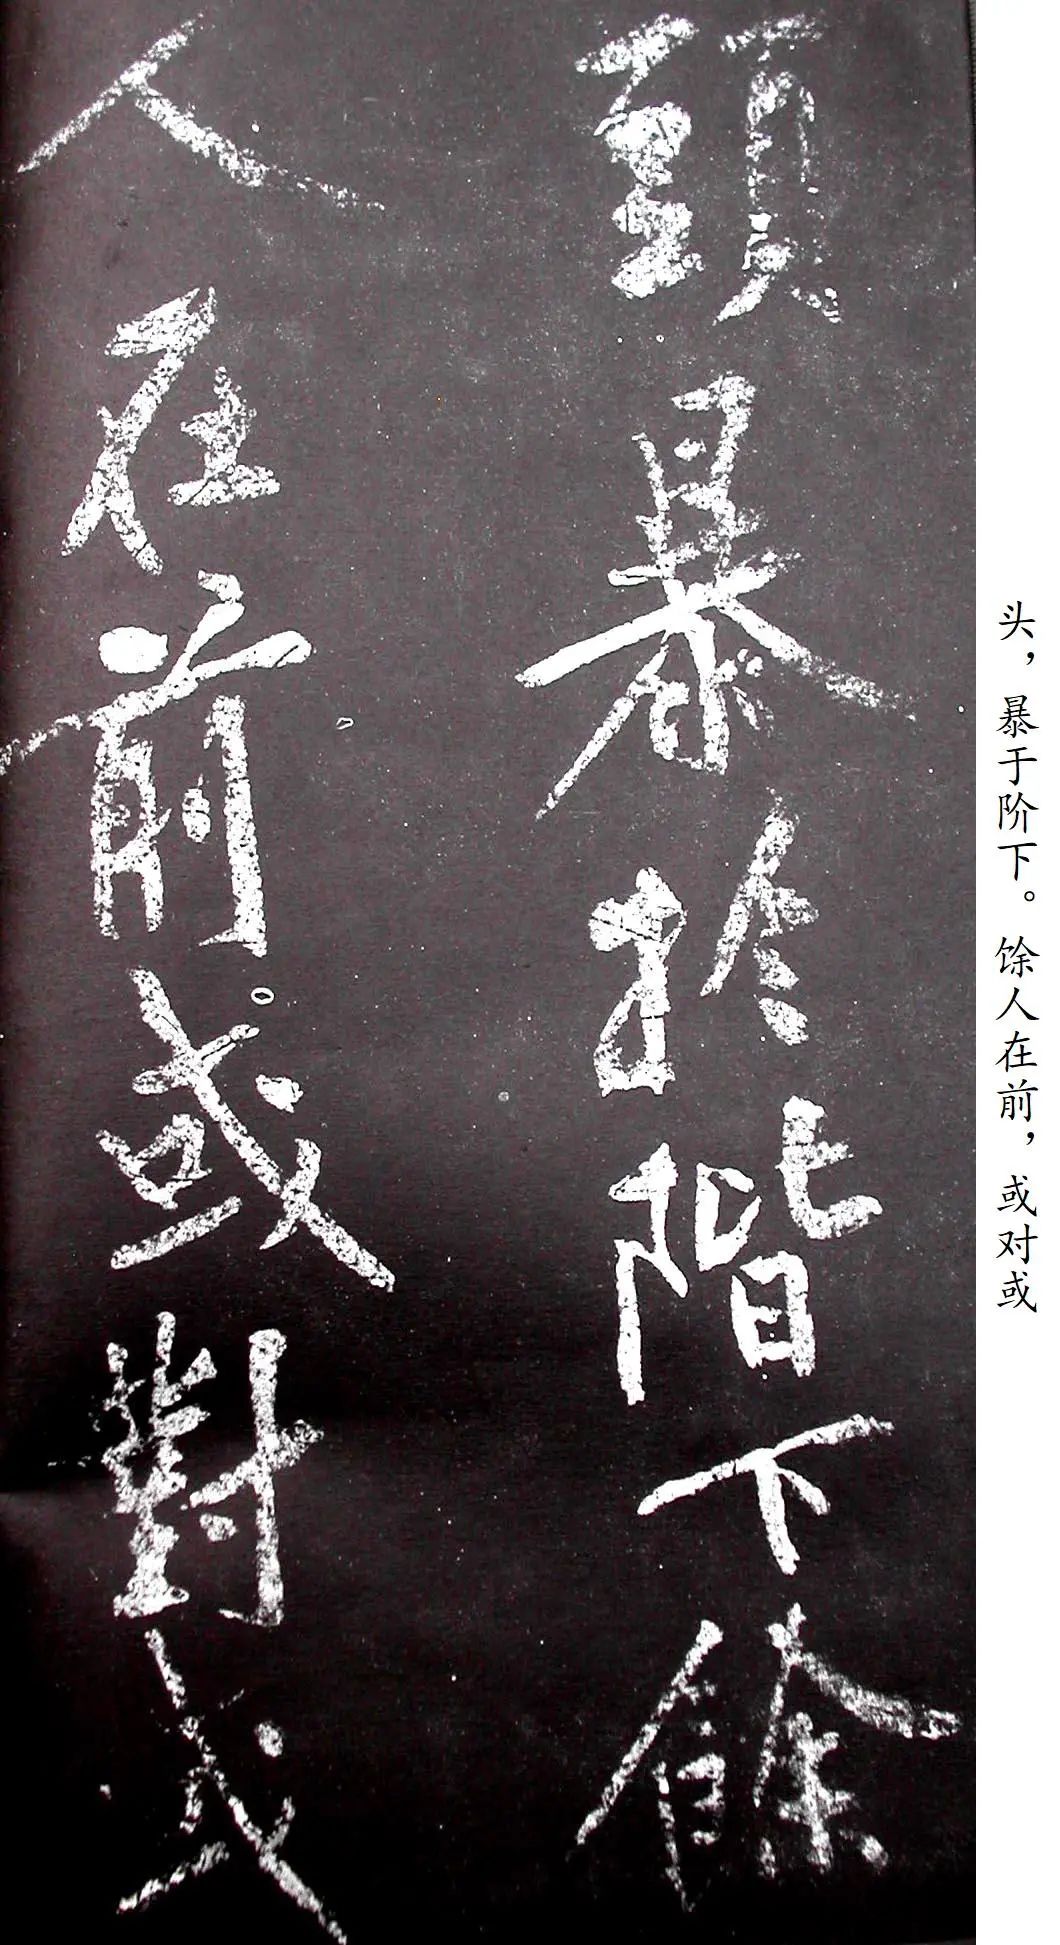 頭暴於階下餘
人在前或對或
头，暴于阶下。馀人在前，或对或